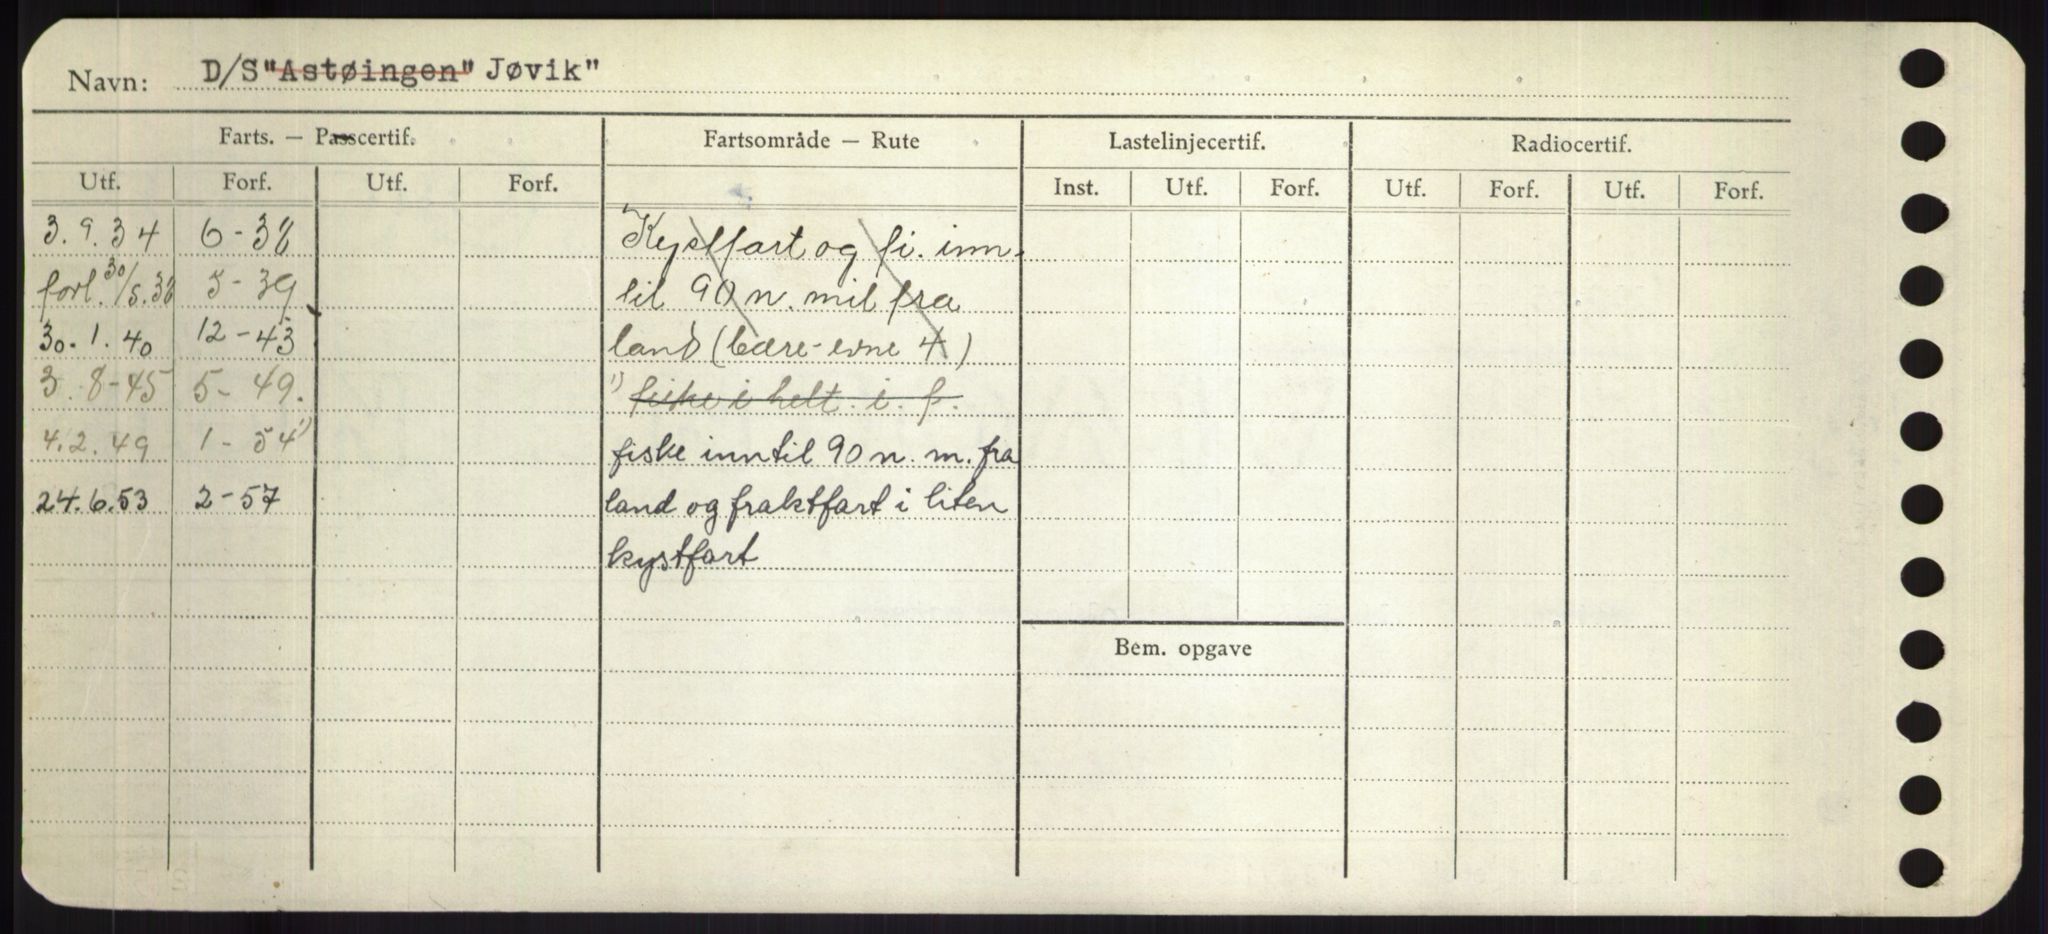 Navn: D/S "Astøingen" Jøvik"
Farts. — Passcertif. Fartsområde — Rute Lastelinjecertif. Radiocertif.
Utf. Forf. Utf. Forf. Inst. Utf. Forf. Utf. Forf. Utf. Forf.
3.9.34 6-38 Kystfart og fi. inn-
forl. 30/5.38 5-39 til 90 n. mil fra
30.1.40 12-43 land (bære-evne 4)
3.8-45 5-49. 1) fiske i helt. i. f.
4.2.49 1-54 1) fiske inntil 90 n. m. fra
24.6.53 2-57 land og fraktfart i liten
kystfart
Bem. opgave